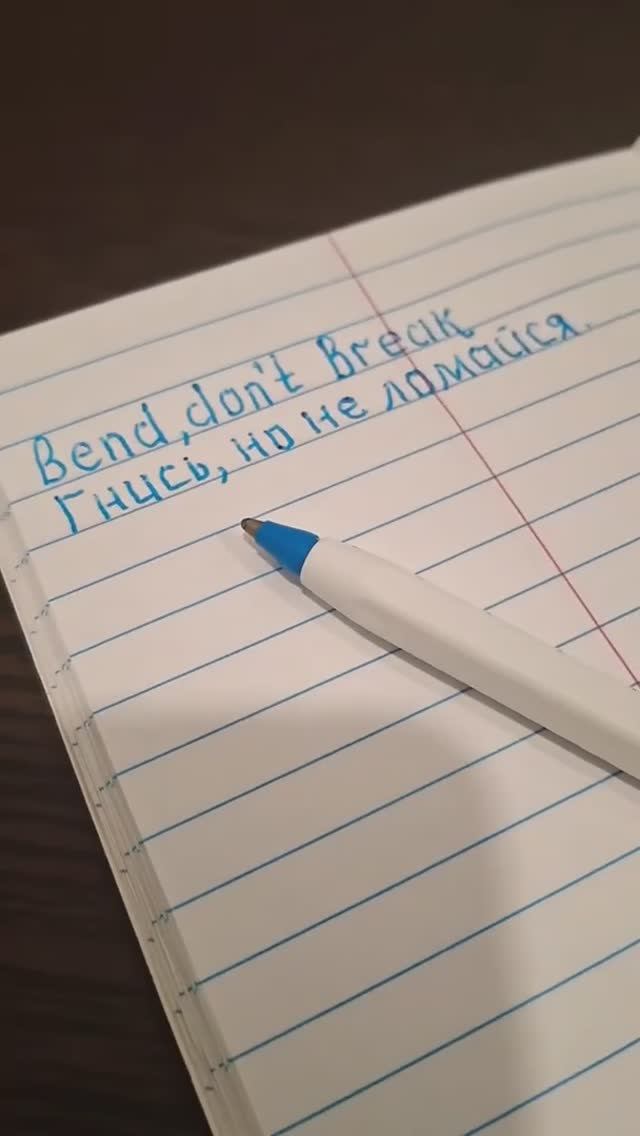 Bend, don't Break
Гнись, но не ломайся.